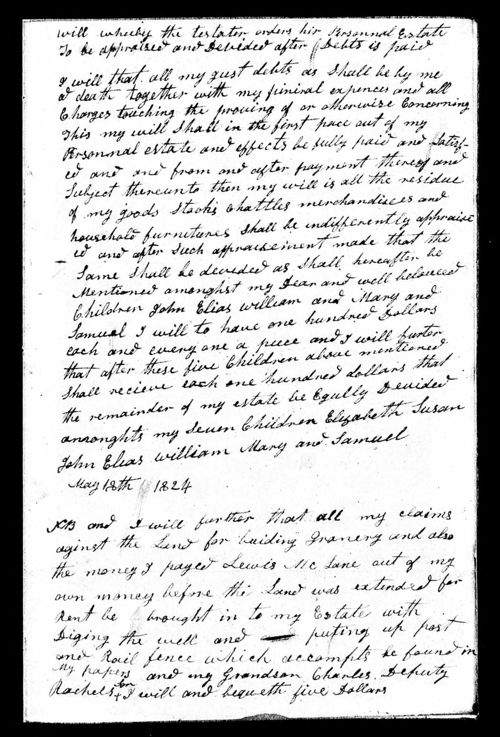 will whereby the testator orders his Personnal Estate
To be appraised and Devided after Debts is paid
I will that all my gust debts as Shall be by me
at death together with my funiral expences and all
Charges touching the proving of or otherwise Concerning
This my will Shall in the first pace out of my
Personnal estate and effects be fully paid and Satisfi-
ed and and from and after payment thereof and
Subject thereunto then my will is all the residue
of my goods Stocks Chattles merchandises and
household furnitures Shall be indifferently appraise
ed and after Such appraisement made that the
Same Shall be devided as Shall hereafter be
Mentioned amonghst my Dear and well beloved
Children John Elias William and Mary and
Samuel I will to have one hundred Dollars
each and every one a piece and I will further
that after these five Children above mentioned
Shall recieve each one hundred dollars that
the remainder of my estate be Egully Devided
amonghts my Seven Children Elizabeth Susan
John Elias William Mary and Samuel
May 18th 1824
NB and I will further that all my claims
against the Land for buiding Granery and also
the money I payed Lewis Mc Lane out of my
own money before the Land was extended for
Rent be brought in to my Estate with
Diging the well and putting up post
and Rail fence which accompts be found in
My papers and my Grandson Charles Deputy
Rachels Son + I will and bequeth five Dollars